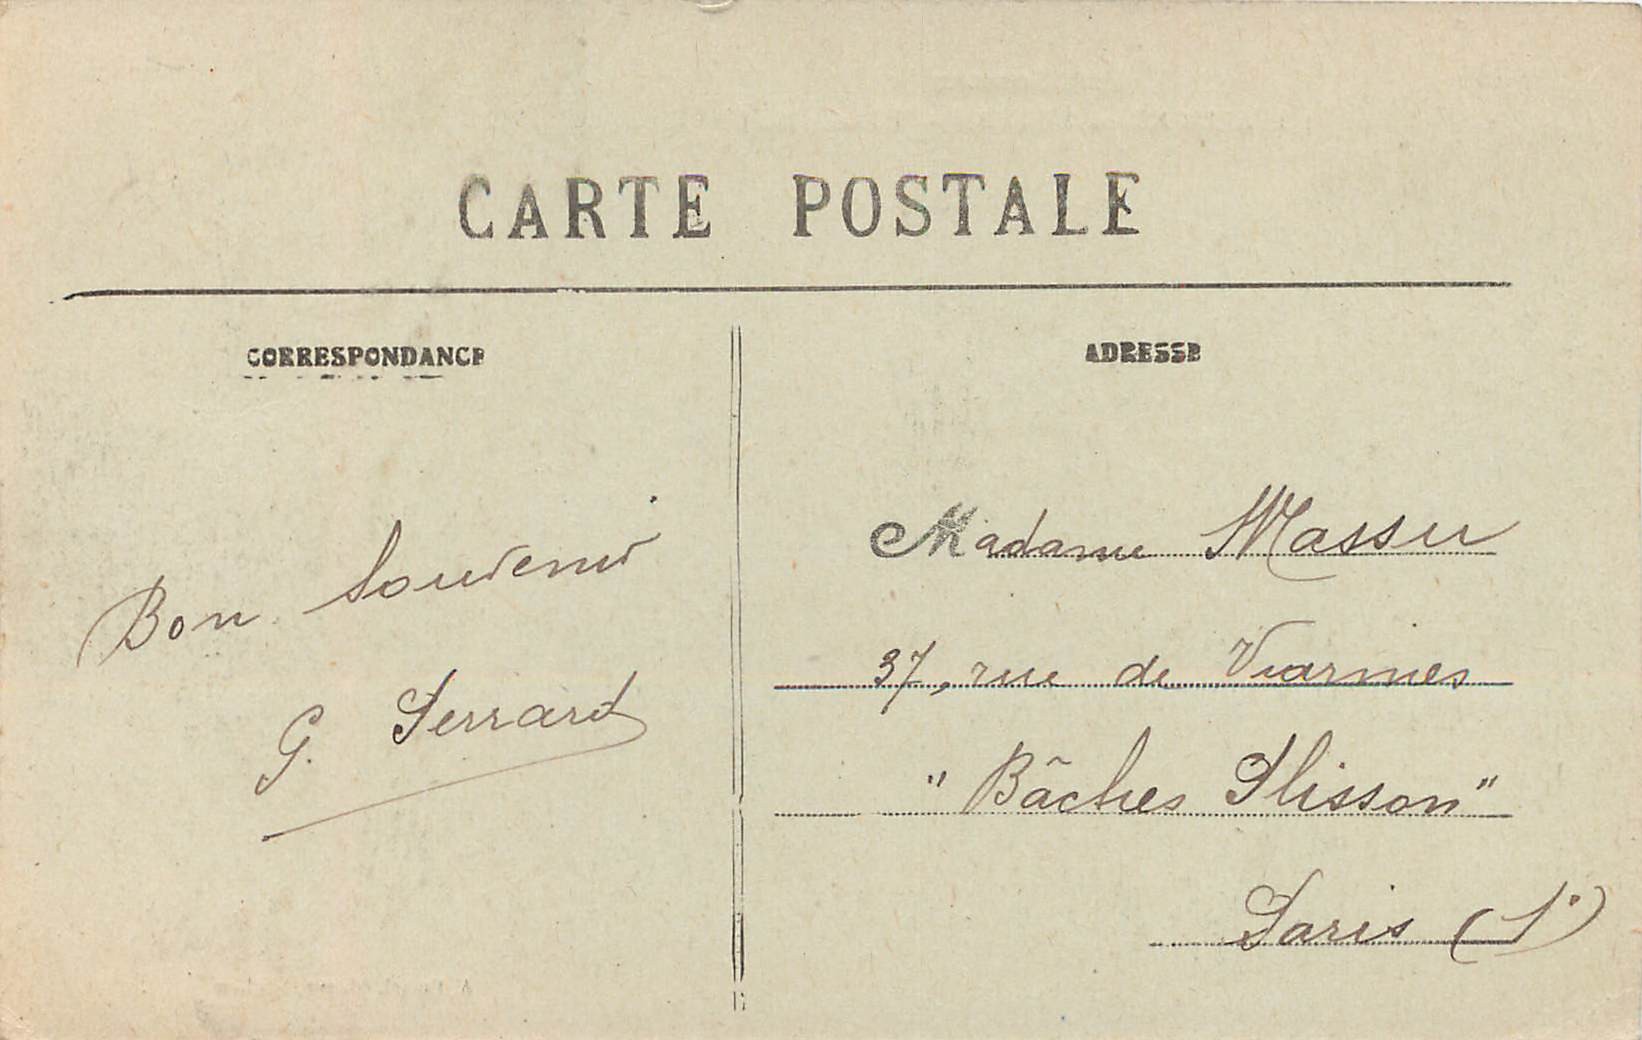 CARTE POSTALE
CORRESPONDANCE
ADRESSE
Bon Souvenir
G. Perrard
Madame Massu
37, rue de Viarmes
" Bâches Plisson "
Paris (1º)